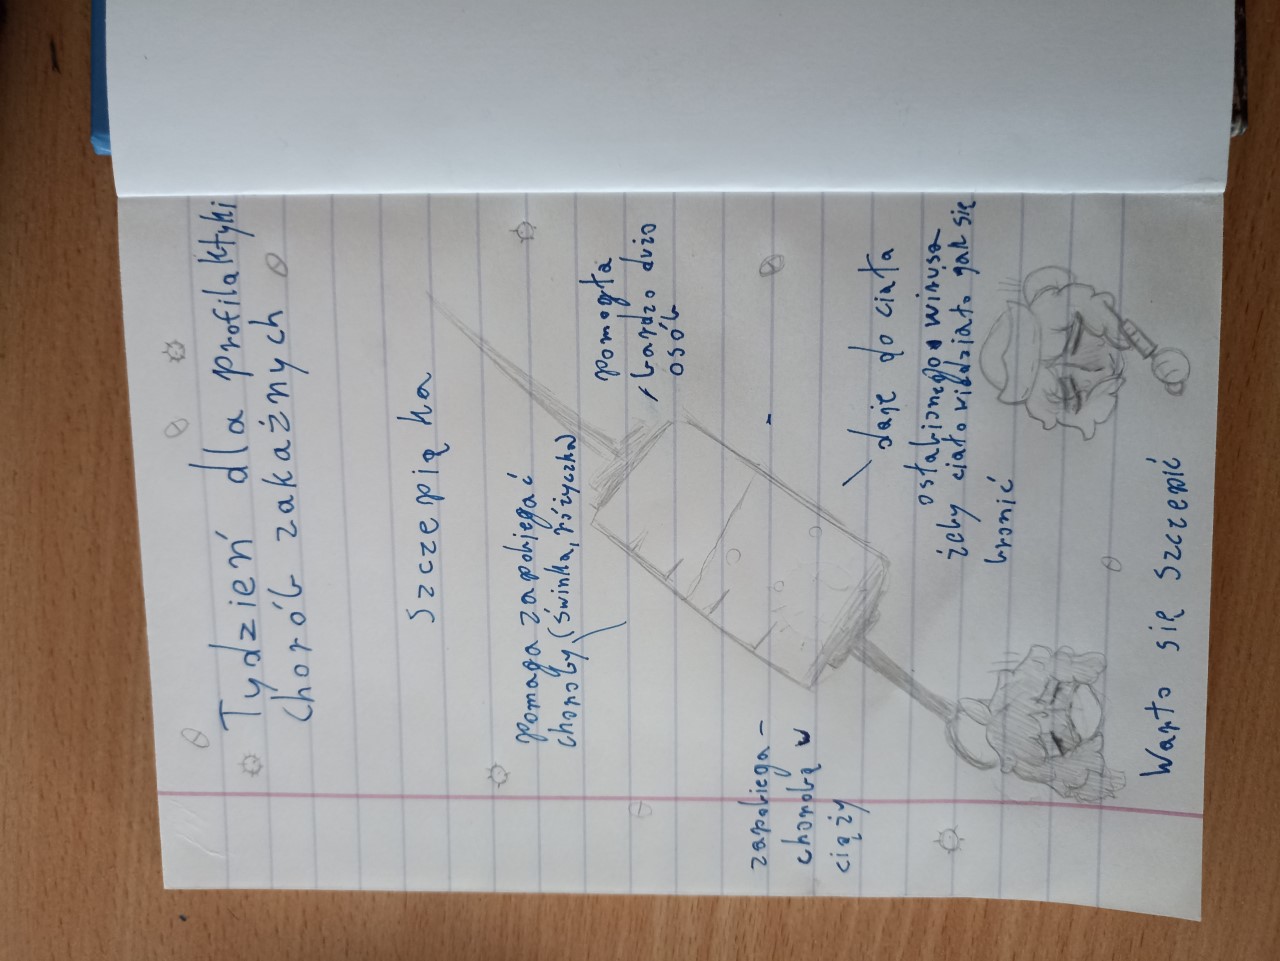 Tydzień dla profilaktyki
chorób zakaźnych
szczepiąka
pomaga zapobiegać
choroby (świnka, różyczka)
pomogła
bardzo dużo
osób
zapobiega -
chorobą w
ciąży
daje do ciała
osłabionego wirusa
żeby ciało wiedziało jak się
bronić
Warto się szczepić